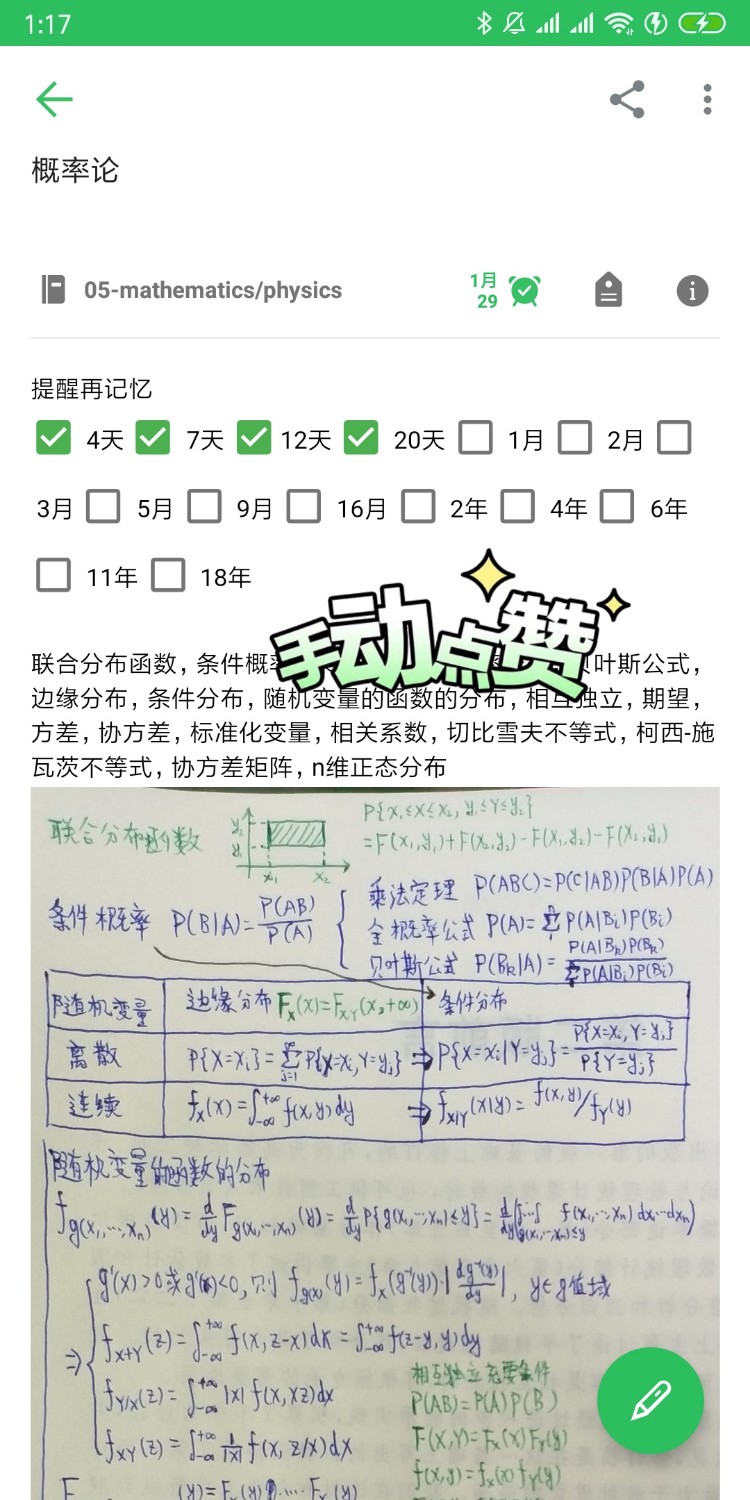 1:17
概率论
05-mathematics/physics
1月
29
提醒再记忆
4天 7天 12天 20天 1月 2月
3月 5月 9月 16月 2年 4年 6年
11年 18年
手动点赞
联合分布函数，条件概 叶斯公式，
边缘分布，条件分布，随机变量的函数的分布，相互独立，期望，
方差，协方差，标准化变量，相关系数，切比雪夫不等式，柯西-施
瓦茨不等式，协方差矩阵，n维正态分布
联合分布函数
y₂
y₁
x₁ x₂
P{x₁≤X≤x₂, y₁≤Y≤y₂}
=F(x₁,y₁)+F(x₂,y₂)-F(x₁,y₂)-F(x₂,y₁)
条件概率 P(B|A)=P(AB)/P(A)
乘法定理 P(ABC)=P(C|AB)P(B|A)P(A)
全概率公式 P(A)=∑P(A|Bᵢ)P(Bᵢ)
贝叶斯公式 P(Bₖ|A)=P(A|Bₖ)P(Bₖ)/∑P(A|Bᵢ)P(Bᵢ)
随机变量 边缘分布 Fₓ(x)=F_{X,Y}(x,+∞) 条件分布
离散 P{X=xᵢ}=∑_{j=1}^{∞}P{X=xᵢ,Y=yⱼ} ⇒ P{X=xᵢ|Y=yⱼ}=P{X=xᵢ,Y=yⱼ}/P{Y=yⱼ}
连续 fₓ(x)=∫_{-∞}^{+∞}f(x,y)dy ⇒ f_{X|Y}(x|y)=f(x,y)/f_Y(y)
随机变量的函数的分布
f_{g(x₁,…,xₙ)}(y)=d/dy F_{g(x₁,…,xₙ)}(y)=d/dy P{g(x₁,…,xₙ)≤y}=d/dy ∫…∫_{g(x₁,…,xₙ)≤y} f(x₁,…,xₙ)dx₁…dxₙ
g'(x)>0或g'(x)<0,则 f_{g(x)}(y)=fₓ(g⁻¹(y))·|dg⁻¹(y)/dy|, y∈g值域
⇒ f_{X+Y}(z)=∫_{-∞}^{+∞}f(x,z-x)dx=∫_{-∞}^{+∞}f(z-y,y)dy
f_{Y/X}(z)=∫_{-∞}^{+∞}|x|f(x,xz)dx
f_{XY}(z)=∫_{-∞}^{+∞}1/|x| f(x,z/x)dx
相互独立充要条件
P(AB)=P(A)P(B)
F(X,Y)=Fₓ(x)F_Y(y)
f(x,y)=fₓ(x)f_Y(y)